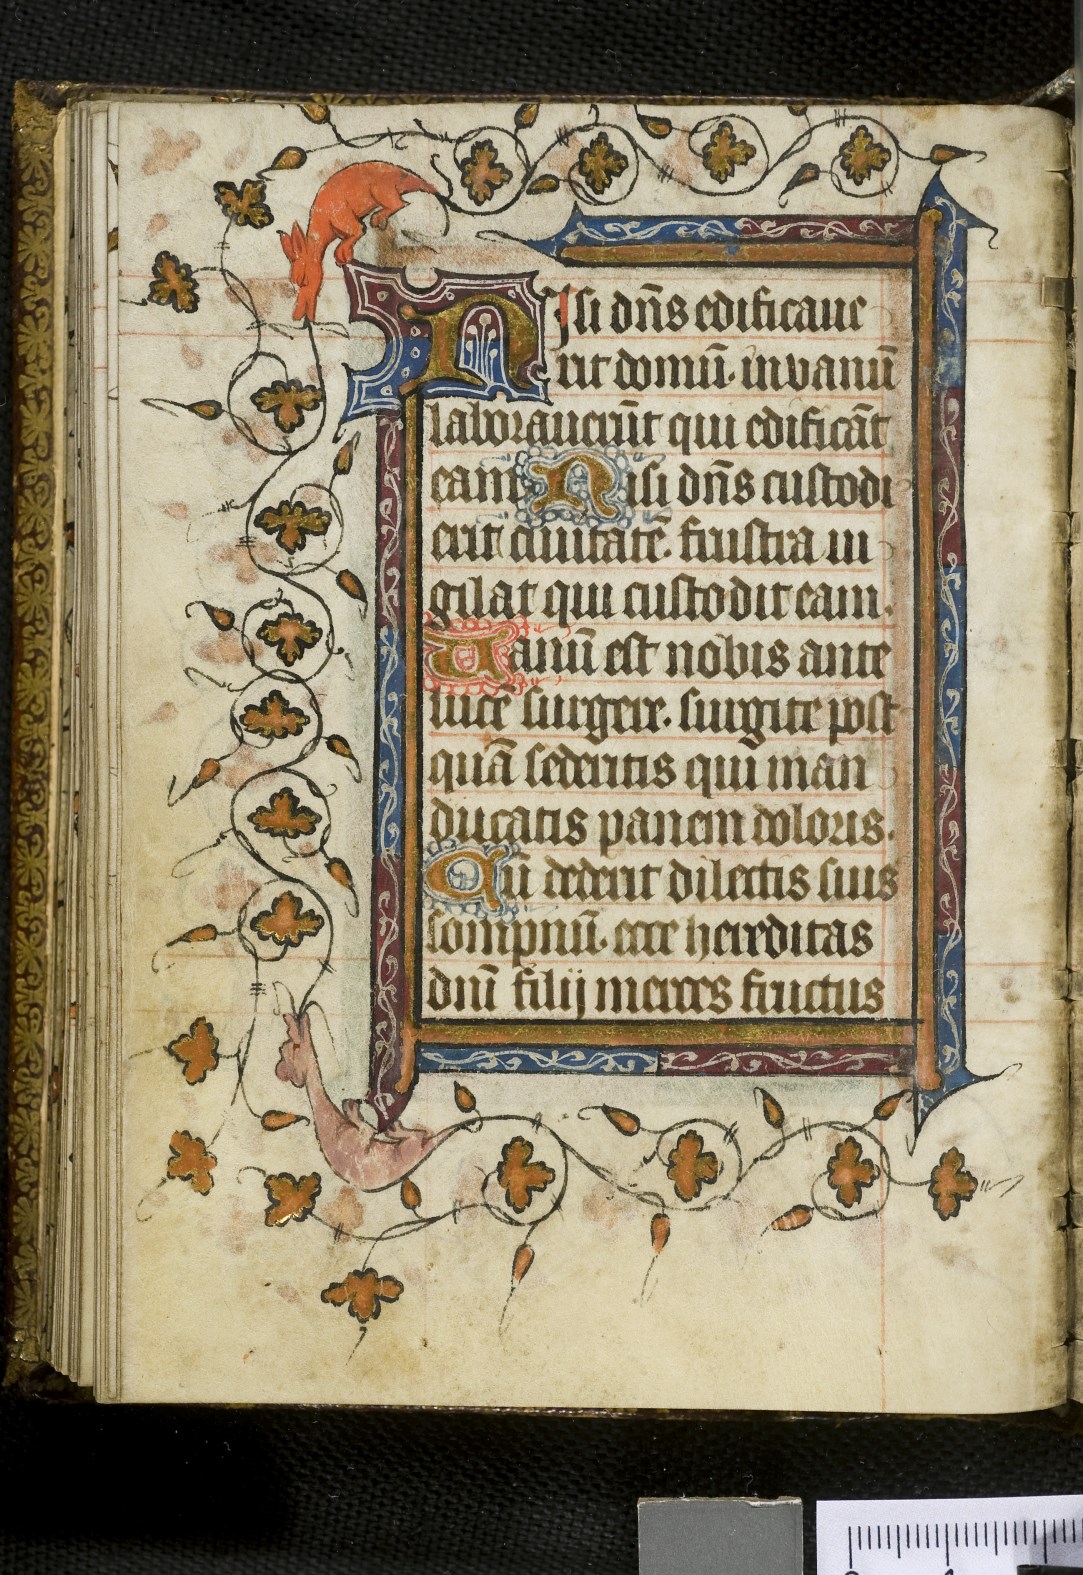 NIsi dn̄s edificaue
rit domū. in vanū
laborauerūt qui edificāt
eam Nisi dn̄s custodi
erit ciuitatē. frustra ui
gilat qui custodit eam.
Uanū est nobis ante
lucē surgere. surgite post
quā sederitis qui man
ducatis panem doloris.
Cū dederit dilectis suis
sompnū. ecce hereditas
dn̄i filij merces fructus